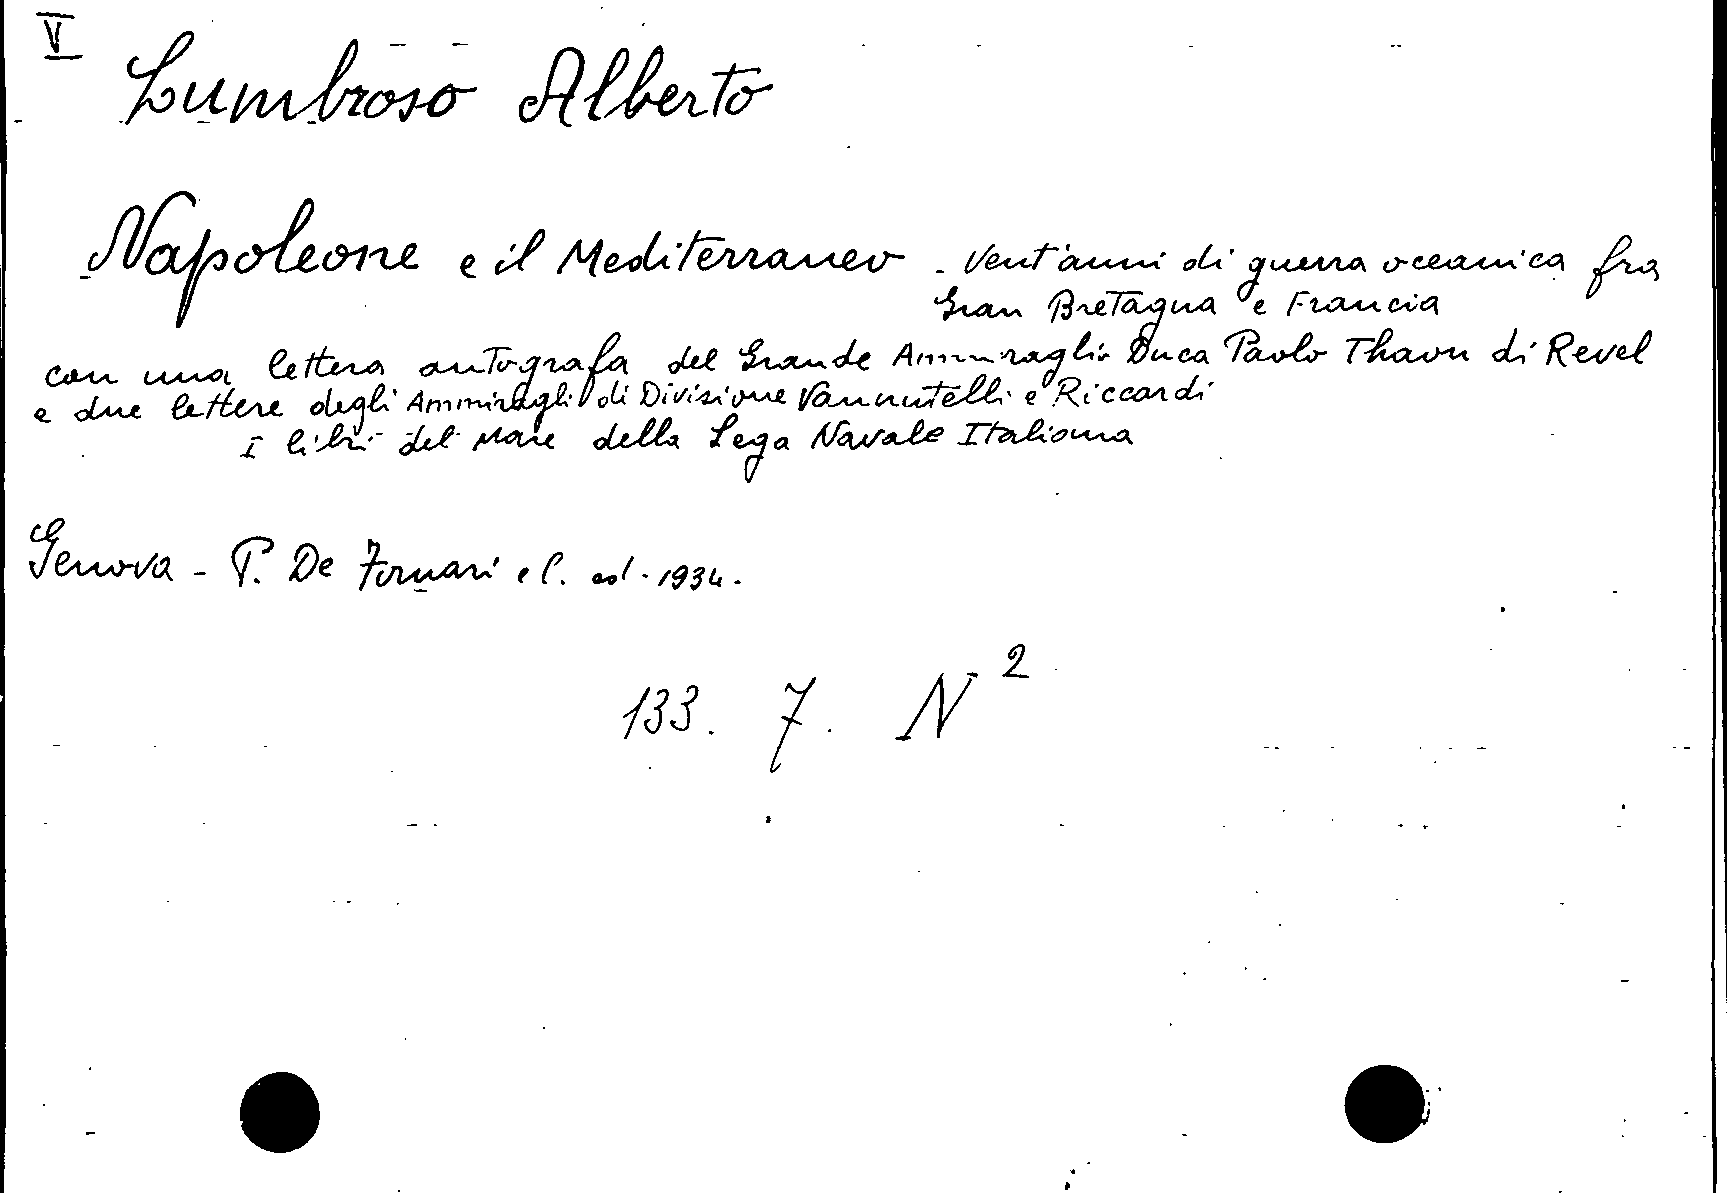 V
Lumbroso Alberto
Napoleone e il Mediterraneo - Vent'anni di guerra oceanica fra
Gran Bretagna e Francia
con una lettera autografa del Grande Ammiraglio Duca Paolo Thaon di Revel
e due lettere degli Ammiragli di Divisione Vannutelli e Riccardi
I libri del Mare della Lega Navale Italiana
Genova - P. De Fornari e C. ed. 1934.
133. 7. N²